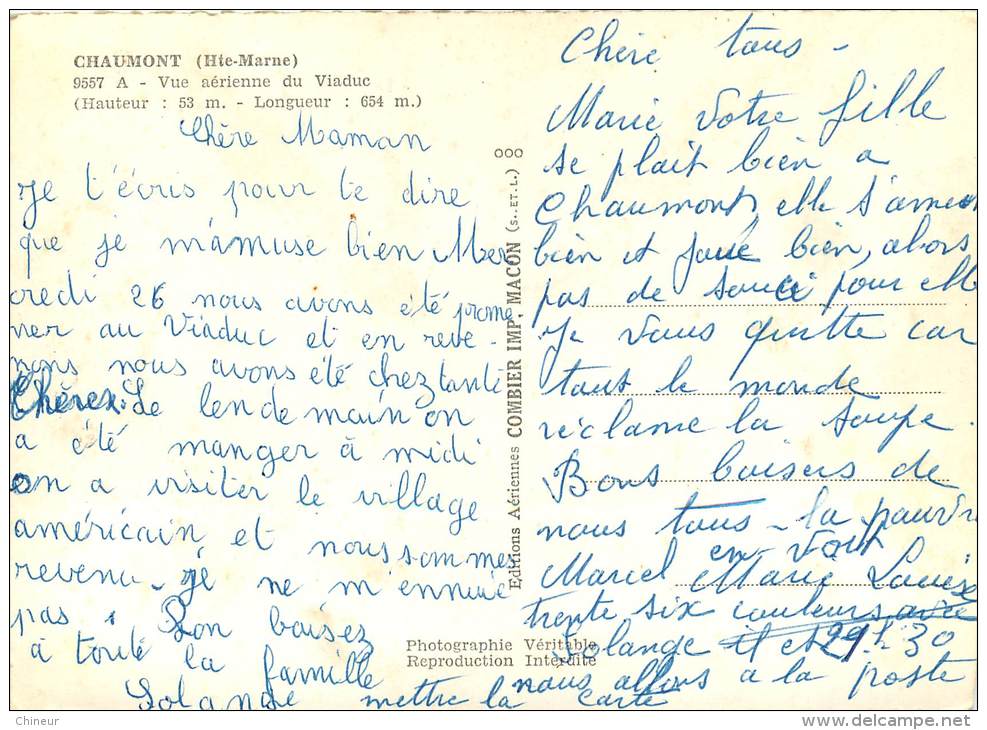 CHAUMONT (Hte-Marne)
9557 A - Vue aérienne du Viaduc
(Hauteur : 53 m. - Longueur : 654 m.)
Chère Maman
Je t'écris pour te dire
que je m'amuse bien Mer
credi 26 nous avons été prome
ner au Viaduc et en reve-
nons nous avons été chez tante
Le lendemain on
a été manger à midi
on a visiter le village
américain et nous sommes
revenu - je ne m'ennuie
pas.
Bon baisez
à toute la famille
Solange
ooo
Editions Aériennes COMBIER IMP. MACON (S.. ET. L.)
Photographie Véritable
Reproduction Interdite
Chère tous -
Marie votre fille
se plait bien a
Chaumont, elle s'amuse
bien et joue bien, alors
pas de souci pour elle
Je vous quitte car
tout le monde
réclame la soupe.
Bons baisers de
nous tous - la pauvre
Marcel en voit
Marie Louise
trente six couleurs avec
Solange il est 21h30
nous allons a la poste
mettre la carte
Chineur
delcampe.net